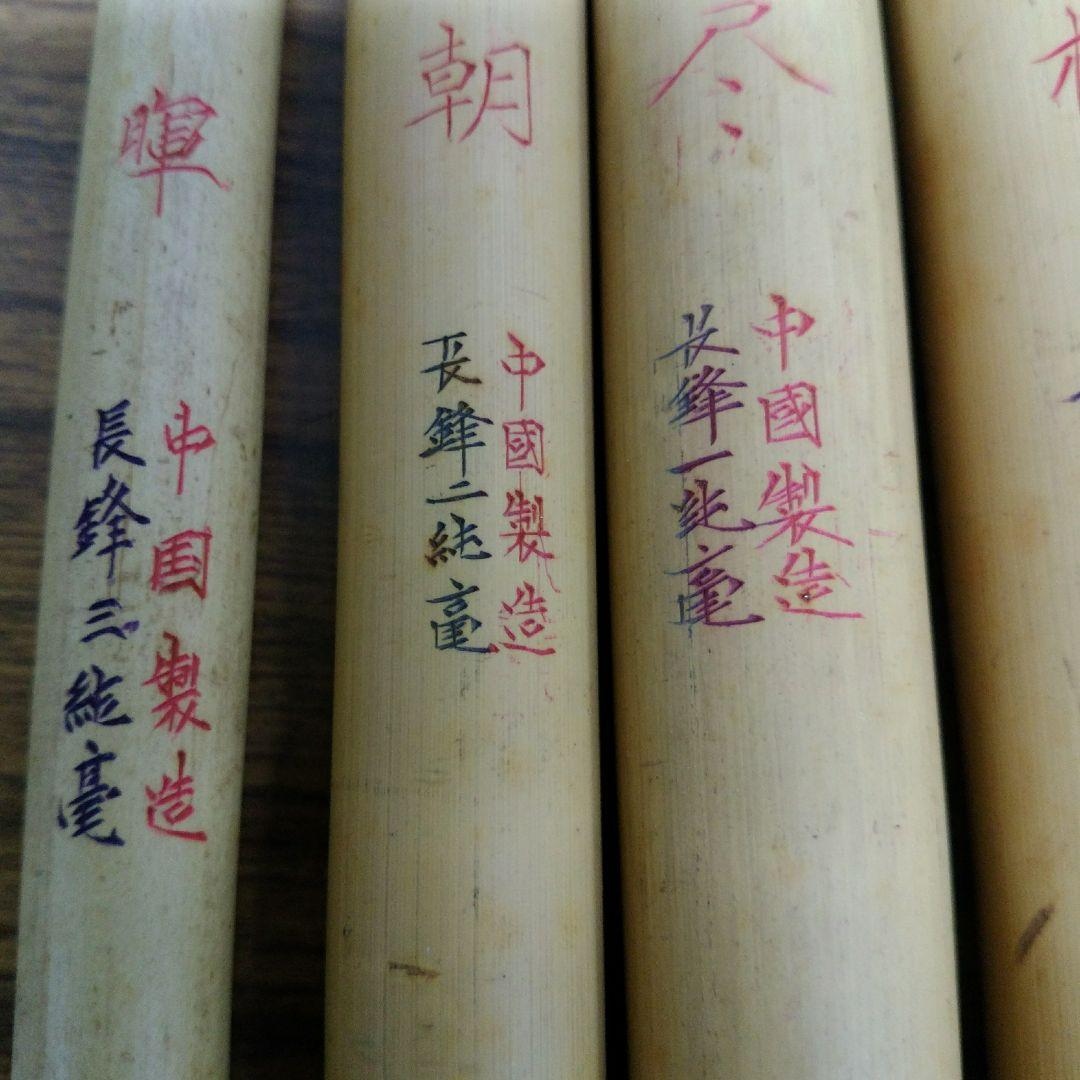 暉
中国製造
長鋒三純毫
朝
中國製造
長鋒二純毫
尽
中國製造
长鋒一純毫